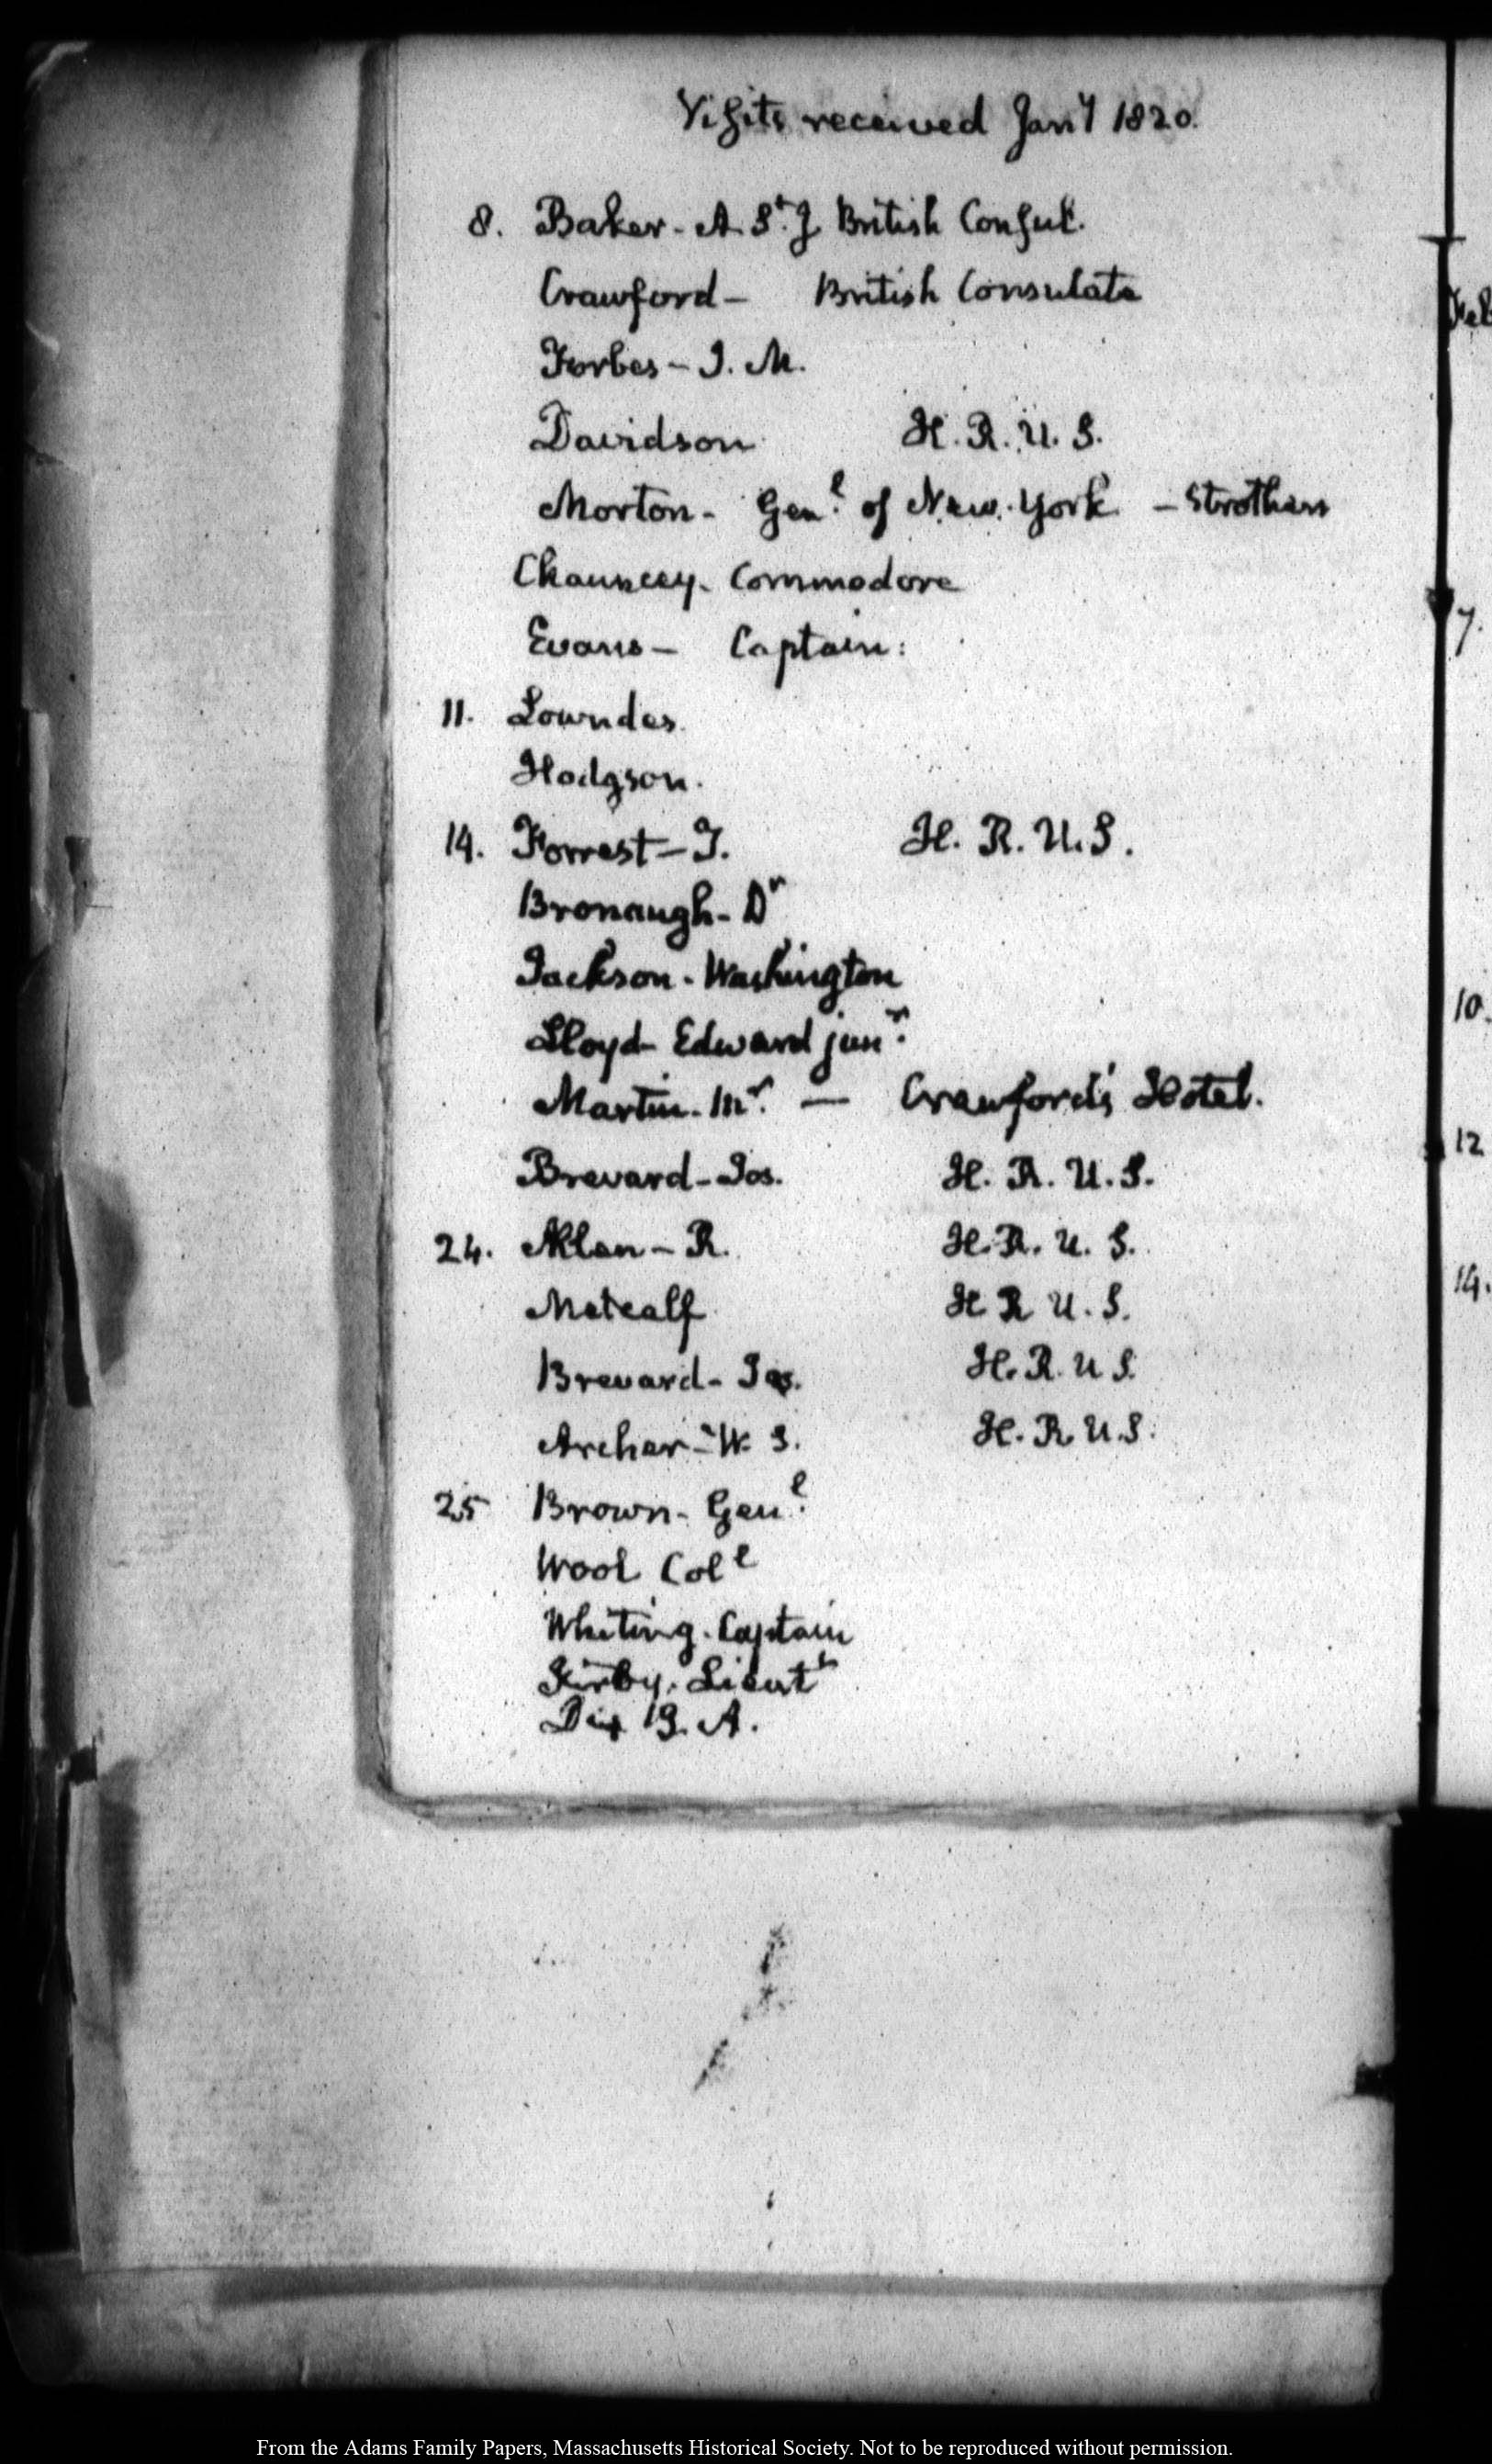 Visits received Jany 1820.
8. Baker - A. St. J. British Consul.
Crawford - British Consulate
Forbes - J. M.
Davidson H. R. U. S.
Morton - Genl. of New-York - Strothers
Chauncey - Commodore
Evans - Captain:
11. Lowndes.
Hodgson.
14. Forrest - T. H. R. U. S.
Bronaugh - Dr
Jackson - Washington
Lloyd - Edward junr.
Martin - Mr. - Crawford's Hotel.
Brevard - Jos. H. R. U. S.
24. Allen - R. H. R. U. S.
Metcalf H R U. S.
Brevard - Jos. H. R. U S.
Archer - W. S. H. R. U. S.
25 Brown - Genl.
Wool Coll
Whiting - Captain
Kirby. Lieutt
Dix 19. A.
7.
10.
12
14.
From the Adams Family Papers, Massachusetts Historical Society. Not to be reproduced without permission.